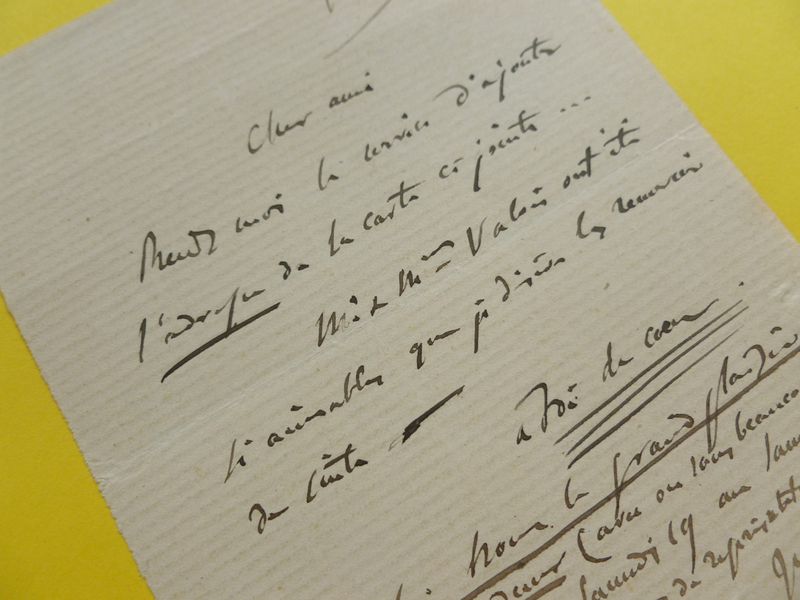 Cher ami
Rendez moi le service d'ajouter
l'adresse de la carte ci jointe ...
Mr & Mme Valois ont été
si aimables que je désire les remercier
de suite —
à toi de coeur.
nous le grand plaisir
(avec ou sans beaucoup
samedi 19 au
de représentation